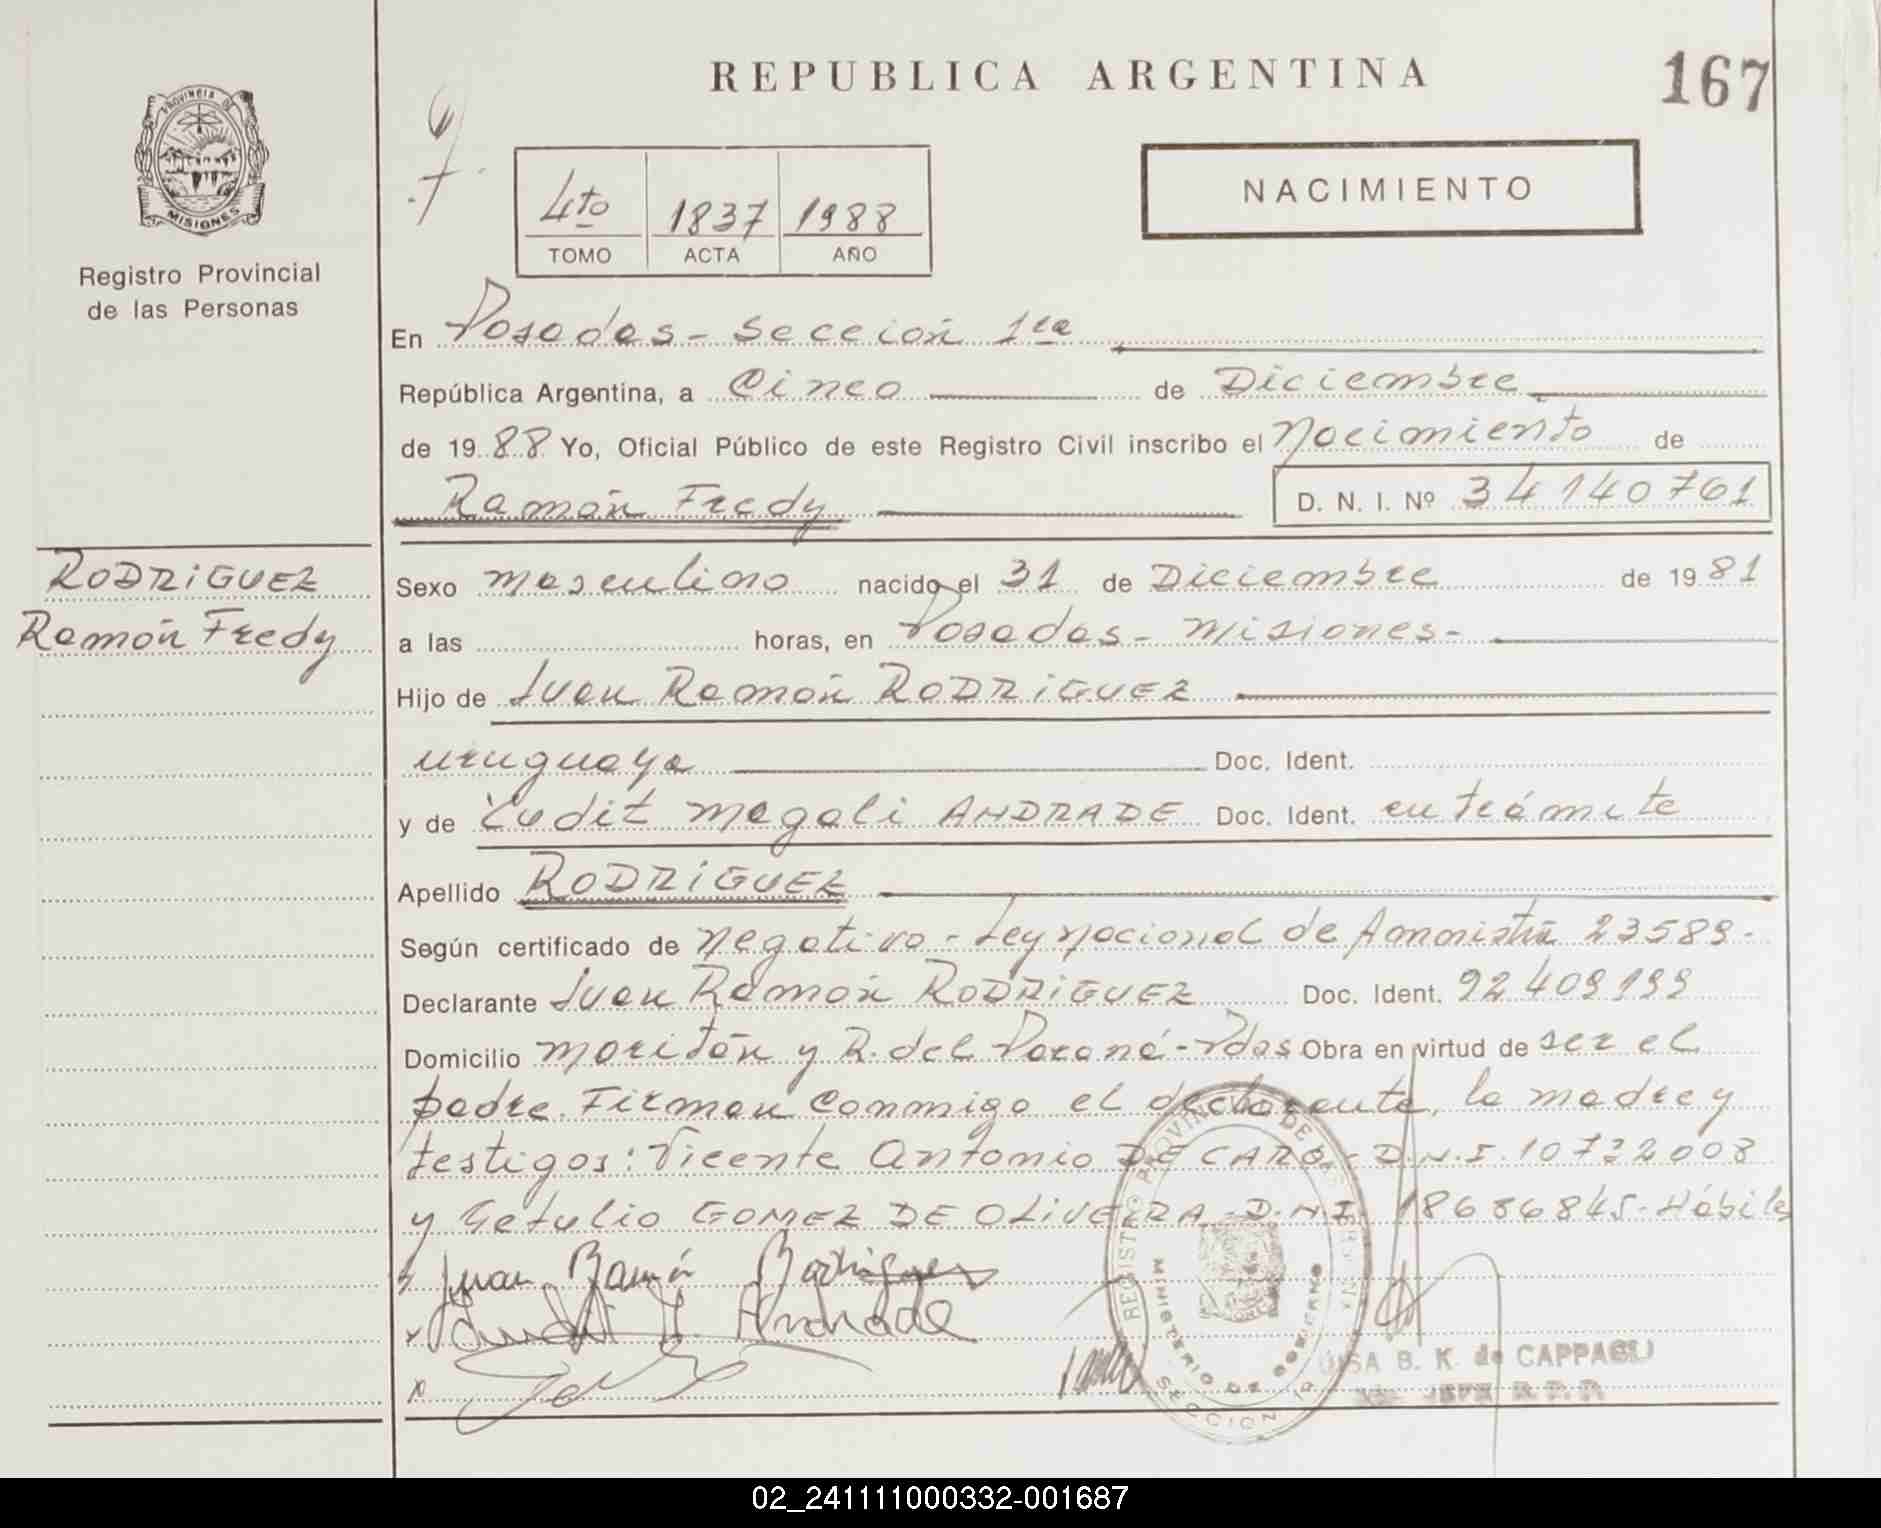 REPUBLICA ARGENTINA
167
PROVINCIA DE
MISIONES
Registro Provincial
de las Personas
4to 1837 1988
TOMO ACTA AÑO
NACIMIENTO
En Posadas - Sección 1ra
República Argentina, a Cinco de Diciembre
de 1988 Yo, Oficial Público de este Registro Civil inscribo el Nacimiento de
Ramón Fredy D. N. I. Nº 34140761
RODRIGUEZ
Ramón Fredy
Sexo masculino nacido el 31 de Diciembre de 1981
a las horas, en Posadas - Misiones -
Hijo de Juan Ramón RODRIGUEZ
uruguaya Doc. Ident.
y de Yudit Magali ANDRADE Doc. Ident. en trámite
Apellido RODRIGUEZ
Según certificado de negativo - Ley nacional de Amnistía 23589 -
Declarante Juan Ramón RODRIGUEZ Doc. Ident. 92409199
Domicilio y R. del Paraná - Pdas Obra en virtud de ser el
padre. Firman conmigo el declarante, la madre y
testigos: Vicente Antonio DE CARO - D.N.I. 10722008
y Getulio GOMEZ DE OLIVEIRA - D.N.I. 18686845 - Hábiles
Juan Ramón Rodriguez
Andrade
MINISTERIO DE GOBIERNO
SECCION
B. K. de CAPPAGLI
02_241111000332-001687